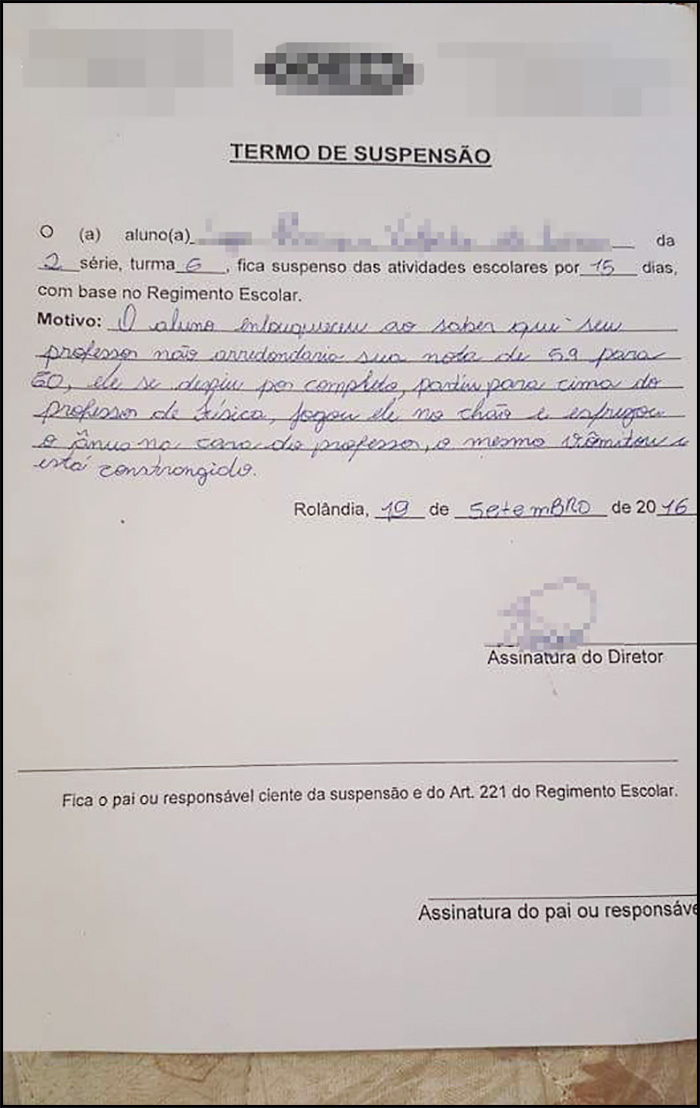 TERMO DE SUSPENSÃO
O (a) aluno(a) da
2 série, turma 6, fica suspenso das atividades escolares por 15 dias,
com base no Regimento Escolar.
Motivo: O aluno enlouqueceu ao saber que seu
professor não arredondaria sua nota de 59 para
60, ele se despiu por completo, partiu para cima do
professor de física, jogou ele no chão e esfregou
o ânus na cara do professor, o mesmo vômitou e
está constrangido.
Rolândia, 19 de SetemBRO de 2016
Assinatura do Diretor
Fica o pai ou responsável ciente da suspensão e do Art. 221 do Regimento Escolar.
Assinatura do pai ou responsáve